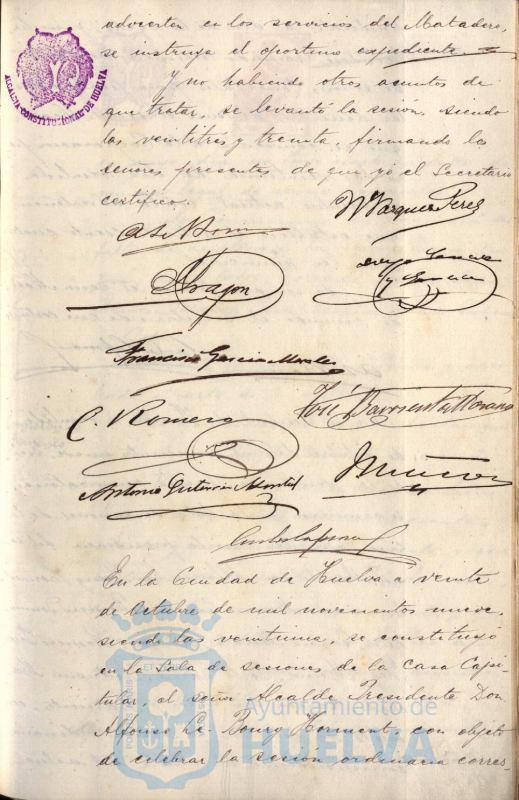 advierten en los servicios del Matadero,
se instruya el oportuno expediente.
Y no habiendo otros asuntos de
que tratar, se levantó la sesión, siendo
las veintitrés y treinta, firmando los
señores presentes de que yo el Secretario
certifico.
ALCALDIA CONSTITUCIONAL DE HUELVA
W Vazquez Perez
Aragon
y Garcia
Francisco Garcia Morales
José Barrientos Moreno
C. Romero
Antonio Gutierrez
En la Ciudad de Huelva a veinte
de Octubre de mil novecientos nueve,
siendo las veintiuna, se constituyó
en la Sala de sesiones de la Casa Capi-
tular, el señor Alcalde Presidente Don
Alfonso Le Bourg Homent, con objeto
de celebrar la sesión ordinaria corres-
Ayuntamiento de
HUELVA